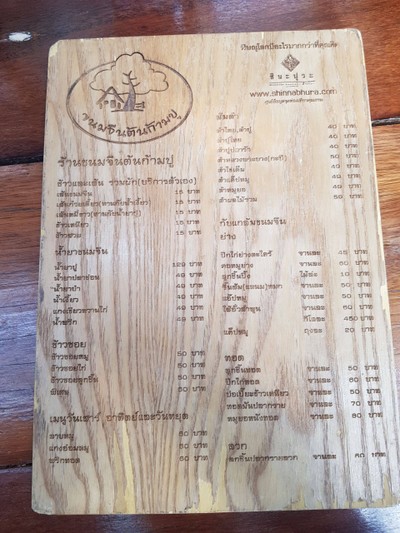 พิษณุโลกมีอะไรมากกว่าที่คุณคิด
ชินะปุระ
www.shinnabhura.com
ขนมจีนต้นก้ามปู
ร้านขนมจีนต้นก้ามปู
ข้าวและเส้น รวมผัก(บริการตัวเอง)
เส้นขนมจีน 15 บาท
15 บาท
15 บาท
ข้าวเหนียว 15 บาท
ข้าวสวย 15 บาท
น้ำยาขนมจีน
น้ำยาปู 129 บาท
น้ำยาปลาช่อน 49 บาท
น้ำยาป่า 49 บาท
น้ำเงี้ยว 49 บาท
แกงเขียวหวานไก่ 49 บาท
น้ำพริก 49 บาท
ข้าวซอย
ข้าวซอยหมู 50 บาท
ข้าวซอยไก่ 50 บาท
ข้าวซอยลูกชิ้น 50 บาท
พิเศษ 60 บาท
เมนูวันเสาร์ อาทิตย์และวันหยุด
ลาบหมู 60 บาท
แกงอ่อมหมู 60 บาท
60 บาท
ส้มตำ
ตำไทย,ตำปู 40 บาท
ตำปูไทย 40 บาท
ตำปูปลาร้า 40 บาท
40 บาท
ตำไข่เค็ม 40 บาท
ตำแค๊ปหมู 50 บาท
ตำหมูยอ 50 บาท
ตำผลไม้รวม 50 บาท
กับแกล้มขนมจีน
ย่าง
ปีกไก่ย่างตะไคร้ จานละ 45 บาท
คอหมูย่าง จานละ 60 บาท
ลูกชิ้นปิ้ง ไม้ละ 10 บาท
จานละ 60 บาท
จานละ 60 บาท
กิโลละ 450 บาท
แค๊ปหมู ถุงละ 20 บาท
ทอด
ลูกชิ้นทอด จานละ 50 บาท
ปีกไก่ทอด จานละ 60 บาท
จานละ 50 บาท
ทอดมันปลากราย จานละ 70 บาท
หมูยอหนังทอด จานละ 60 บาท
ลวก
ลูกชิ้นปลากรายลวก จานละ 60 บาท